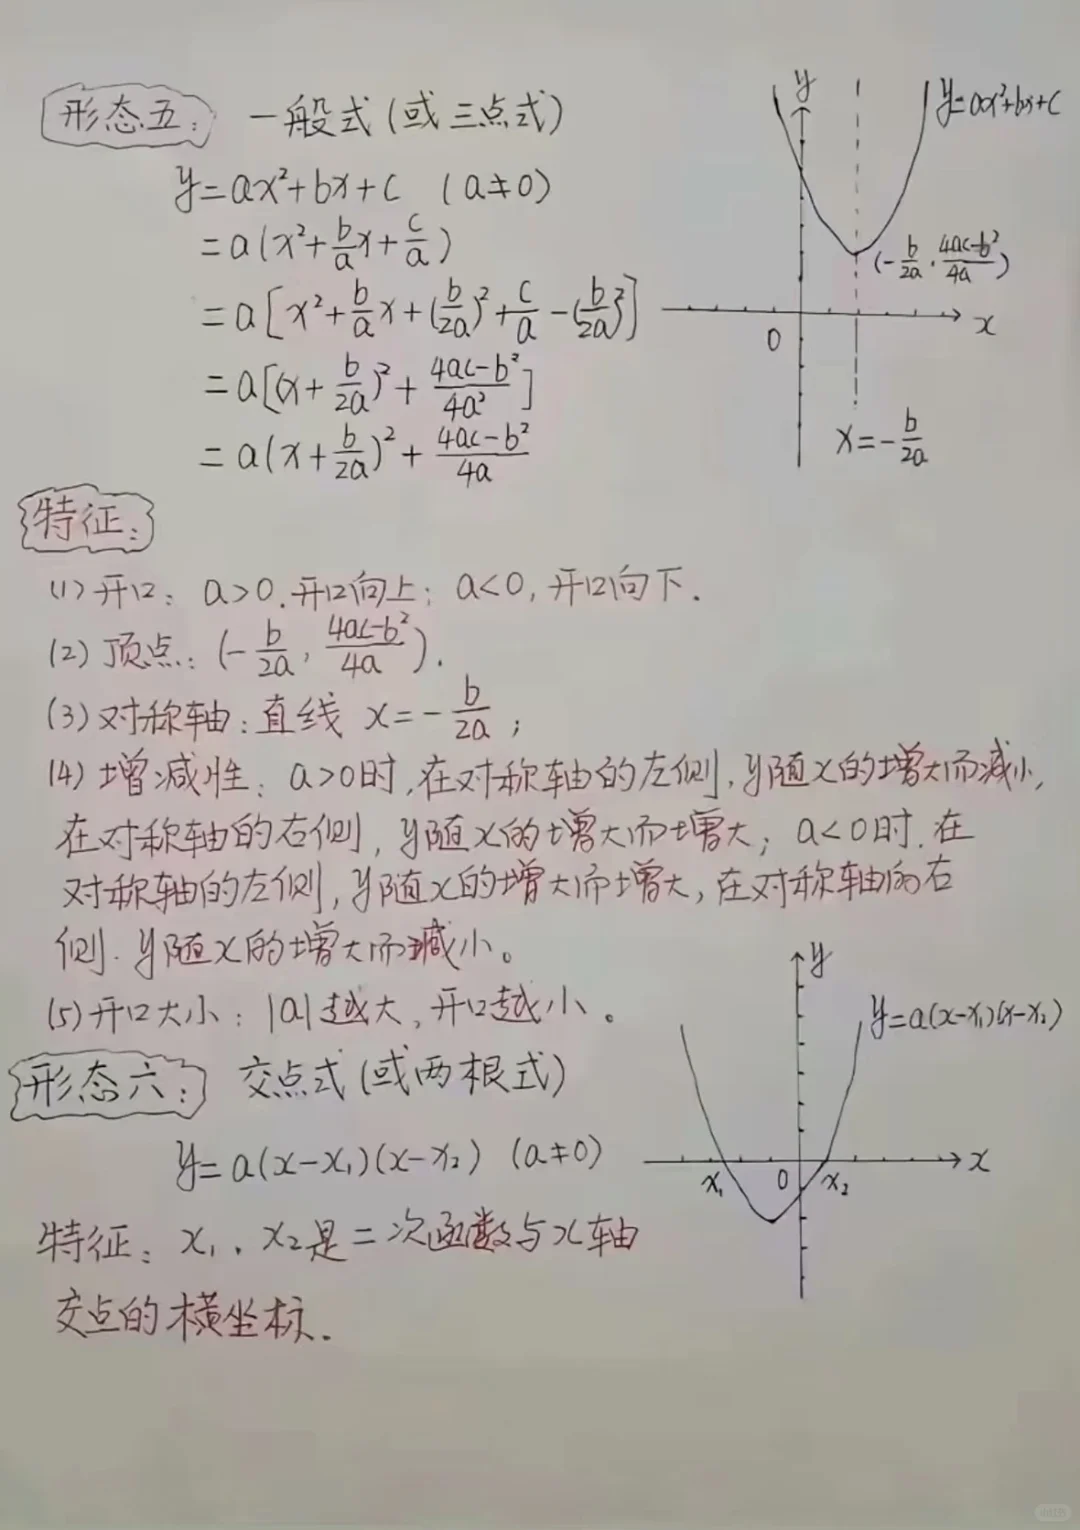 形态五： 一般式(或三点式)
y=ax²+bx+c (a≠0)
=a(x²+b/a x+c/a)
=a[x²+b/a x+(b/2a)²+c/a-(b/2a)²]
=a[(x+b/2a)²+(4ac-b²)/4a²]
=a(x+b/2a)²+(4ac-b²)/4a
y
y=ax²+bx+c
(-b/2a, (4ac-b²)/4a)
0
x
x=-b/2a
特征：
(1)开口：a>0.开口向上；a<0,开口向下.
(2)顶点：(-b/2a, (4ac-b²)/4a).
(3)对称轴：直线 x=-b/2a；
(4)增减性：a>0时,在对称轴的左侧,y随x的增大而减小,
在对称轴的右侧,y随x的增大而增大；a<0时.在
对称轴的左侧,y随x的增大而增大,在对称轴的右
侧.y随x的增大而减小。
(5)开口大小：|a|越大,开口越小。
形态六： 交点式(或两根式)
y=a(x-x₁)(x-x₂) (a≠0)
y
y=a(x-x₁)(x-x₂)
x₁
0
x₂
x
特征：x₁、x₂是二次函数与x轴
交点的横坐标.